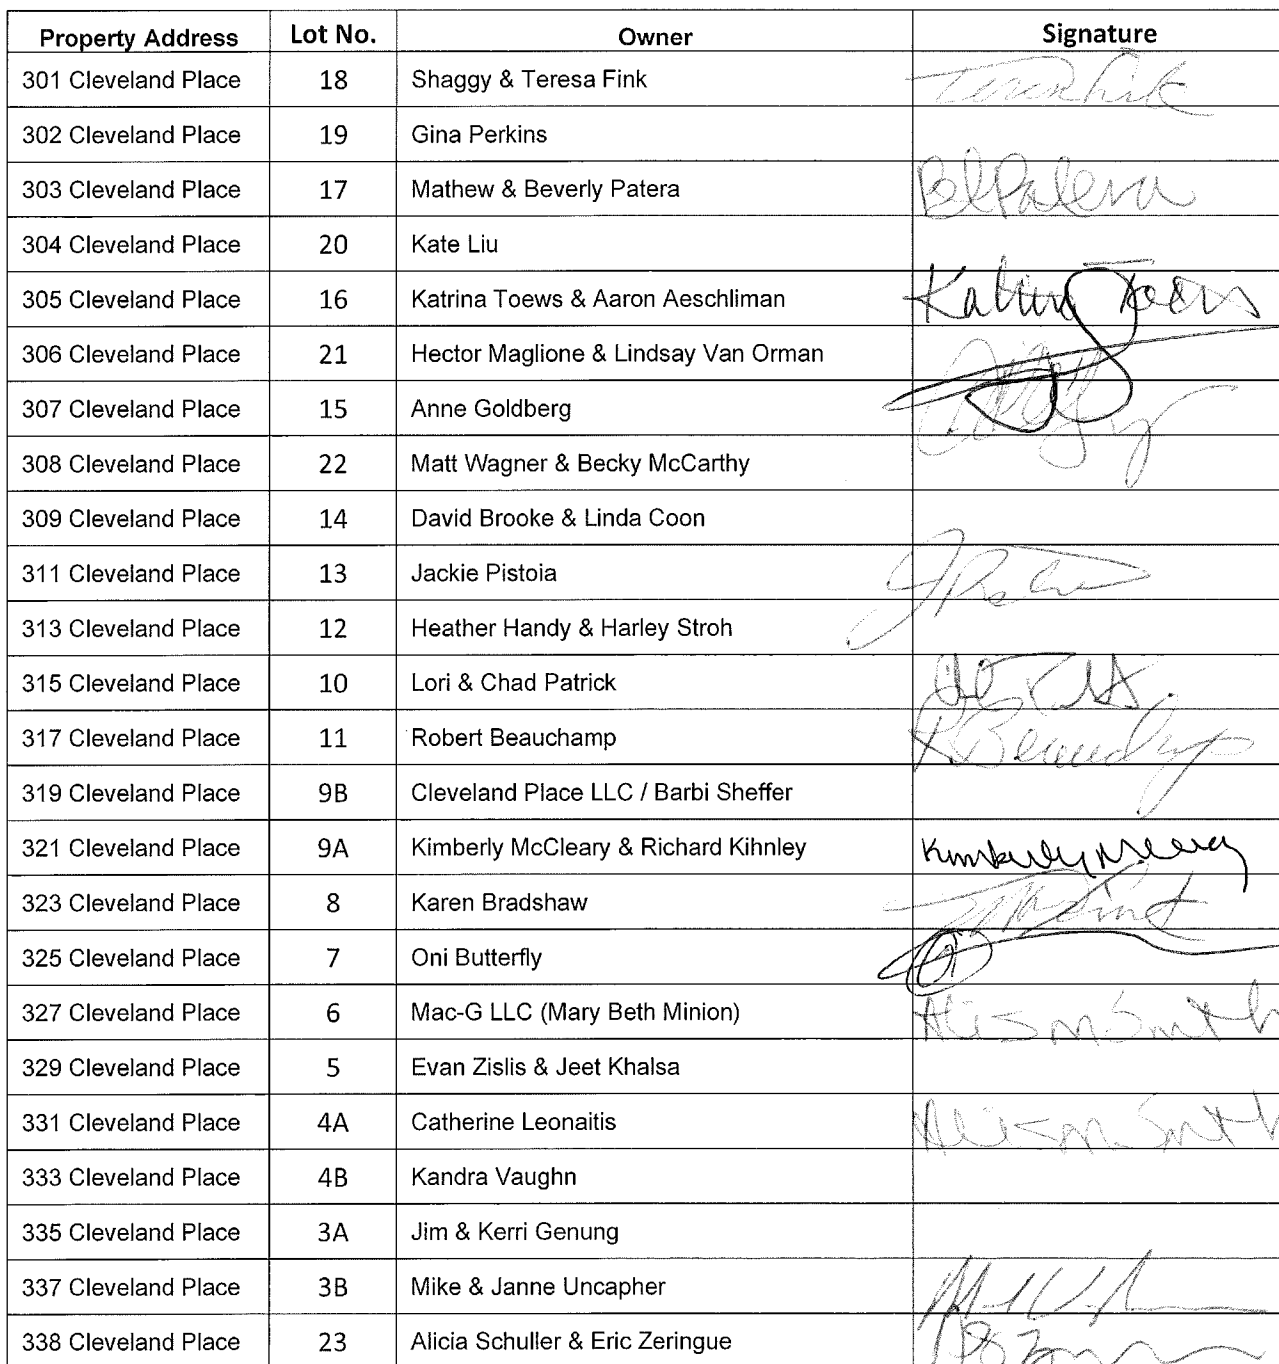 Property Address Lot No. Owner Signature
301 Cleveland Place 18 Shaggy & Teresa Fink
302 Cleveland Place 19 Gina Perkins
303 Cleveland Place 17 Mathew & Beverly Patera
304 Cleveland Place 20 Kate Liu
305 Cleveland Place 16 Katrina Toews & Aaron Aeschliman
306 Cleveland Place 21 Hector Maglione & Lindsay Van Orman
307 Cleveland Place 15 Anne Goldberg
308 Cleveland Place 22 Matt Wagner & Becky McCarthy
309 Cleveland Place 14 David Brooke & Linda Coon
311 Cleveland Place 13 Jackie Pistoia
313 Cleveland Place 12 Heather Handy & Harley Stroh
315 Cleveland Place 10 Lori & Chad Patrick
317 Cleveland Place 11 Robert Beauchamp R Beauchamp
319 Cleveland Place 9B Cleveland Place LLC / Barbi Sheffer
321 Cleveland Place 9A Kimberly McCleary & Richard Kihnley Kimberly McCleary
323 Cleveland Place 8 Karen Bradshaw
325 Cleveland Place 7 Oni Butterfly
327 Cleveland Place 6 Mac-G LLC (Mary Beth Minion) Alison Smith
329 Cleveland Place 5 Evan Zislis & Jeet Khalsa
331 Cleveland Place 4A Catherine Leonaitis Alison Smith
333 Cleveland Place 4B Kandra Vaughn
335 Cleveland Place 3A Jim & Kerri Genung
337 Cleveland Place 3B Mike & Janne Uncapher
338 Cleveland Place 23 Alicia Schuller & Eric Zeringue